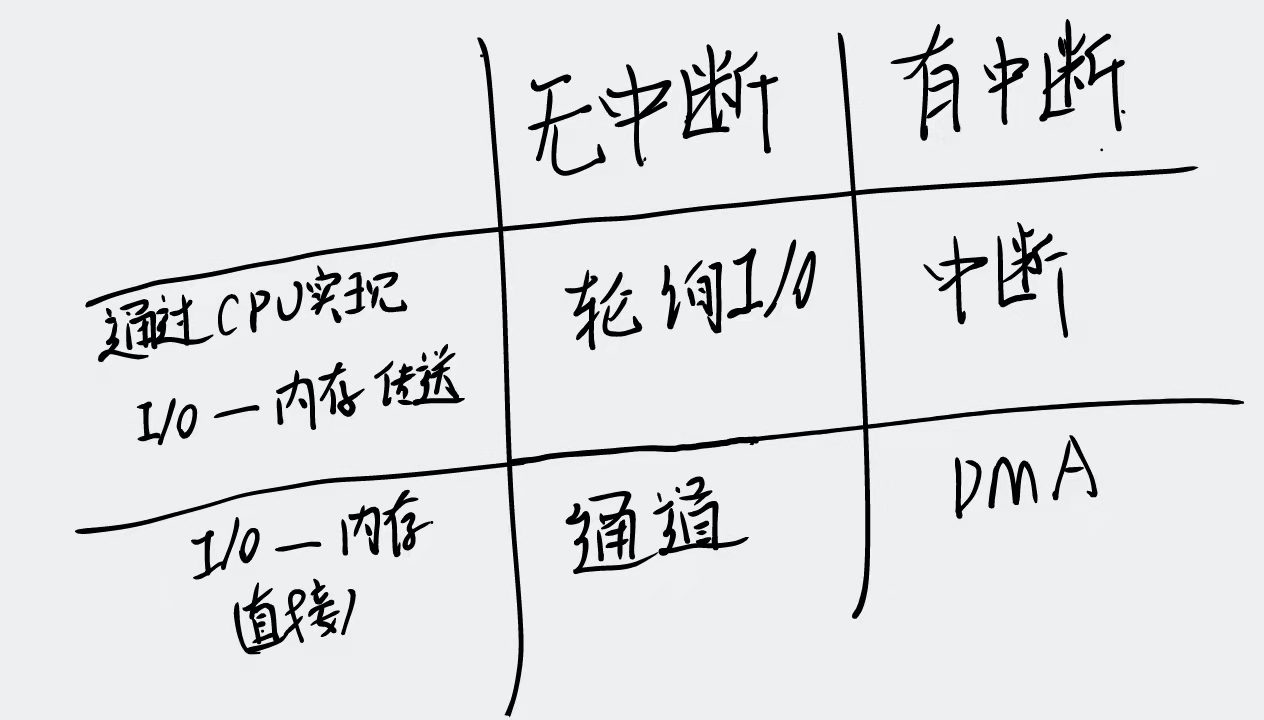 无中断 有中断
通过CPU实现
I/O — 内存传送
轮询I/O 中断
I/O — 内存
(直接)
通道 DMA